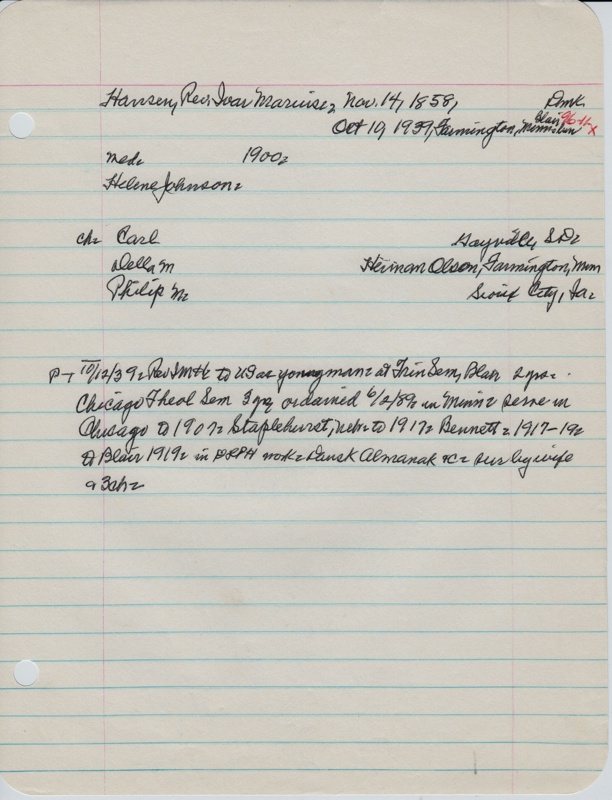 Hansen, Rev. Ivar Marius, Nov. 14, 1858, Dmk.
Oct 10, 1939, Farmington, Minn Blair
Med. 1900.
Helene Johnson.
ch. Carl Gayville, S.D.
Della M Herman Olson, Farmington, Minn
Philip M. Sioux City, Ia.
P-T 10/12/39. Rev IMH to US as young man. at Trin Sem, Blair 2 yrs.
Chicago Theol Sem 3 yr, ordained in Minn. serve in
Chicago to 1907. Staplehurst, Nebr to 1917. Bennett. 1917-19.
to Blair 1919. in DLPH work. Dansk Almanak &c. sur by wife
& 3 ch.